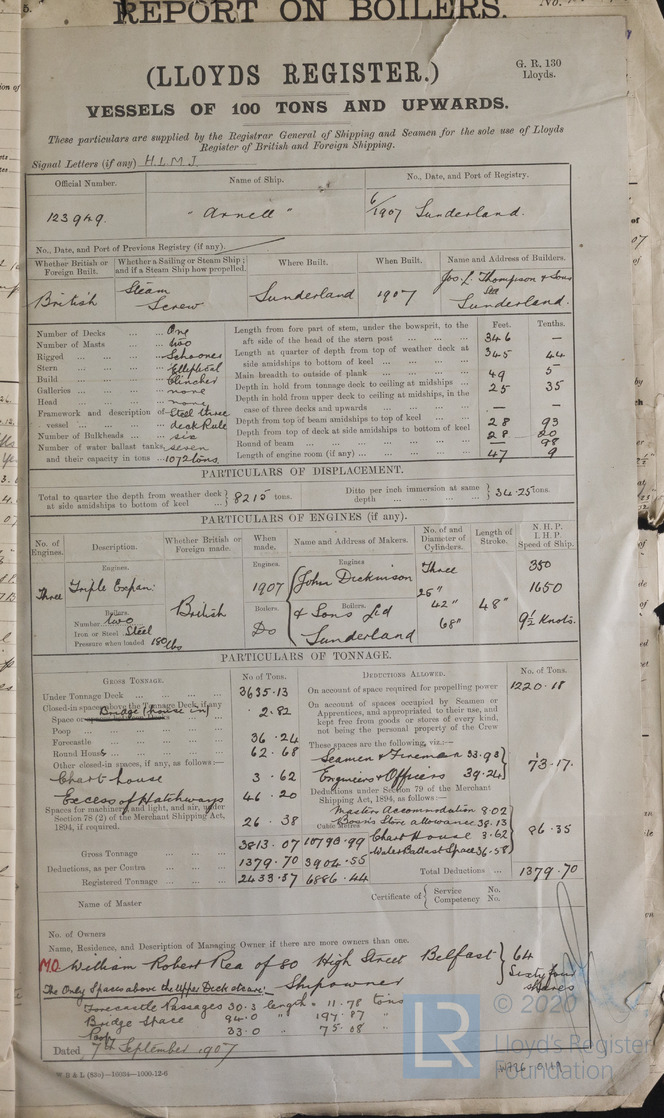 REPORT ON BOILERS.
No.
(LLOYDS REGISTER.)
G. R. 130
Lloyds.
VESSELS OF 100 TONS AND UPWARDS.
These particulars are supplied by the Registrar General of Shipping and Seamen for the sole use of Lloyds
Register of British and Foreign Shipping.
Signal Letters (if any) H L M J
Official Number. Name of Ship. No., Date, and Port of Registry.
123949. "Arnell" 6/1907 Sunderland.
No., Date, and Port of Previous Registry (if any).
Whether British or Foreign Built. Whether a Sailing or Steam Ship; and if a Steam Ship how propelled. Where Built. When Built. Name and Address of Builders.
British Steam Screw Sunderland 1907 Jos. L. Thompson & Sons Ltd Sunderland.
Number of Decks ... One
Number of Masts ... two
Rigged ... Schooner
Stern ... Elliptical
Build ... Clincher
Galleries ... none
Head ... none
Framework and description of vessel ... Steel three deck Rule
Number of Bulkheads ... six
Number of water ballast tanks, seven
and their capacity in tons ... 1072 tons
Feet. Tenths.
Length from fore part of stem, under the bowsprit, to the aft side of the head of the stern post ... 346 —
Length at quarter of depth from top of weather deck at side amidships to bottom of keel ... 345 44
Main breadth to outside of plank ... 49 5
Depth in hold from tonnage deck to ceiling at midships ... 25 35
Depth in hold from upper deck to ceiling at midships, in the case of three decks and upwards ... — —
Depth from top of beam amidships to top of keel ... 28 93
Depth from top of deck at side amidships to bottom of keel 28 20
Round of beam ... — 98
Length of engine room (if any) ... 47 9
PARTICULARS OF DISPLACEMENT.
Total to quarter the depth from weather deck at side amidships to bottom of keel ... 8215 tons.
Ditto per inch immersion at same depth ... 34.25 tons.
PARTICULARS OF ENGINES (if any).
No. of Engines. Description. Whether British or Foreign made. When made. Name and Address of Makers. No. of and Diameter of Cylinders. Length of Stroke. N. H. P. I. H. P. Speed of Ship.
Engines. Engines. Engines
Three Triple Expan: British 1907 John Dickinson Three 350
25" 1650
Boilers. Boilers. Boilers.
Number two & Sons Ld 42" 48"
Iron or Steel Steel Do Sunderland 68" 9½ Knots.
Pressure when loaded 180 lbs
PARTICULARS OF TONNAGE.
GROSS TONNAGE. No of Tons.
Under Tonnage Deck ... 3635.13
Closed-in spaces above the Tonnage Deck, if any
Space or Bridge (house in) 2.82
Poop ...
Forecastle ... 36.24
Round House ... 62.68
Other closed-in spaces, if any, as follows:—
Chart house 3.62
Excess of Hatchways 46.20
Spaces for machinery, and light, and air, under
Section 78 (2) of the Merchant Shipping Act,
1894, if required. 26.38
Cubic Metres
Gross Tonnage ... 3813.07 10793.99
Deductions, as per Contra ... 1379.70 3904.55
Registered Tonnage ... 2433.37 6886.44
DEDUCTIONS ALLOWED. No. of Tons.
On account of space required for propelling power 1220.18
On account of spaces occupied by Seamen or
Apprentices, and appropriated to their use, and
kept free from goods or stores of every kind,
not being the personal property of the Crew
These spaces are the following, viz.:—
Seamen & Firemen 33.93
Engineers & Officers 39.24
73.17.
Deductions under Section 79 of the Merchant
Shipping Act, 1894, as follows:—
Masters Accommodation 8.02
Bosn's Store allowance 38.13
Chart House 3.62
Water Ballast Space 36.58
86.35
Total Deductions ... 1379.70
Name of Master
Certificate of Service No.
Competency No.
No. of Owners
Name, Residence, and Description of Managing Owner if there are more owners than one.
M.O. William Robert Rea of 80 High Street Belfast 64
Shipowner Sixty four shares
The Only Spaces above the Upper Deck etc are:
Forecastle Passages 30.3 length = 11.78 tons
Bridge Space 94.0 " 197.87 "
Poop 33.0 " 75.08 "
Dated 7th September 1907
W B & L (83c)—16034—1000-12-6
W726-0119
LR
© 2020
Lloyd's Register
Foundation